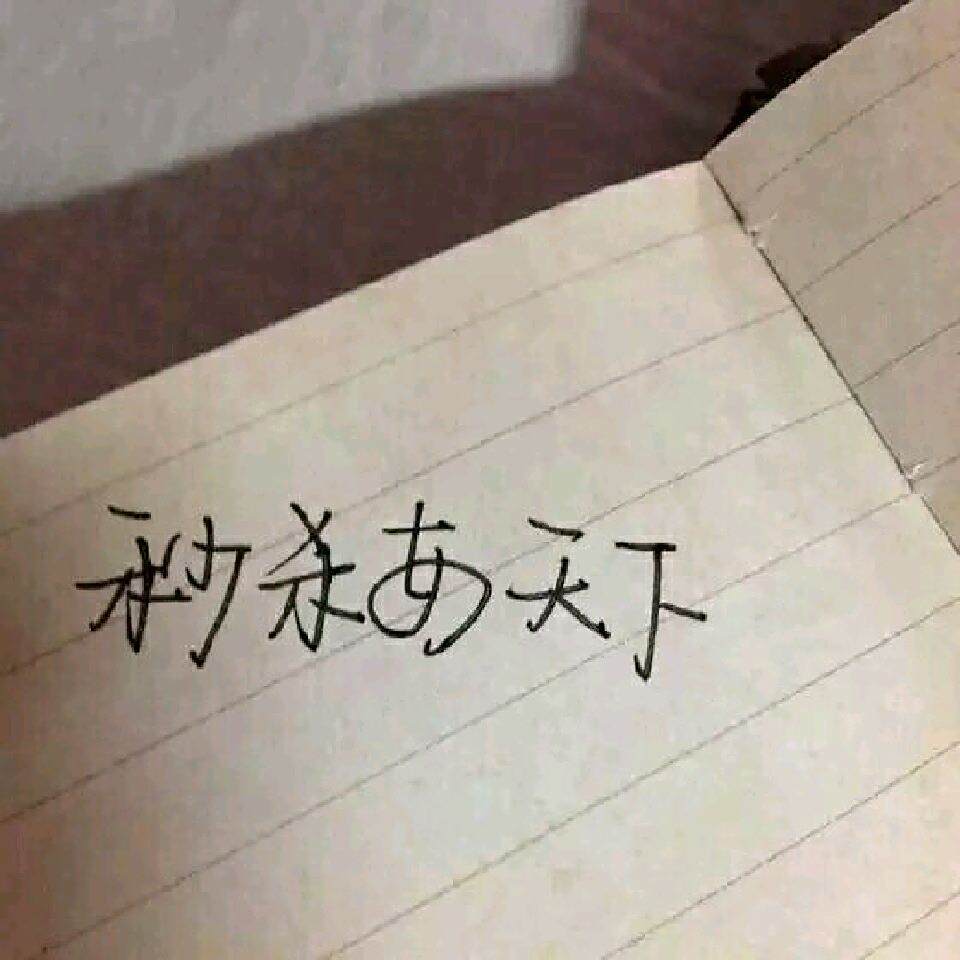 秒杀あ天下